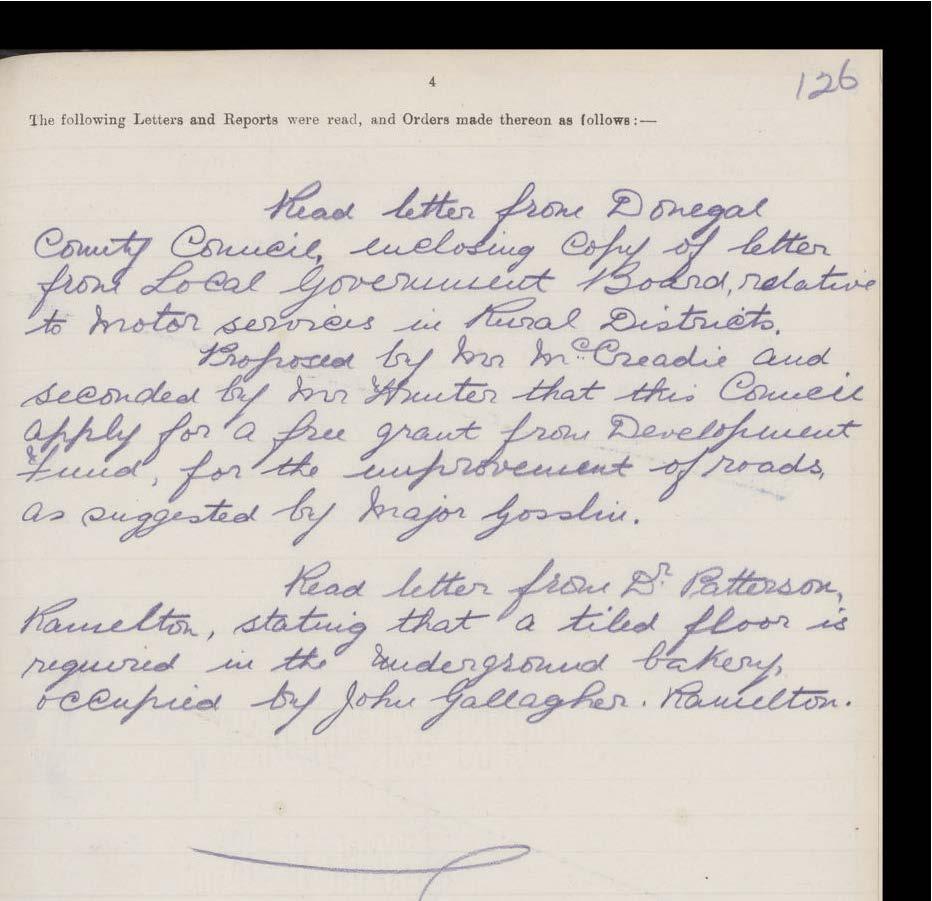 4
126
The following Letters and Reports were read, and Orders made thereon as follows:—
Read letter from Donegal
County Council, enclosing copy of letter
from Local Government Board, relative
to Motor services in Rural Districts.
Proposed by Mr McCreadie and
seconded by Mr Hunter that this Council
apply for a free grant from Development
Fund, for the improvement of roads,
as suggested by Major Gosslin.
Read letter from Dr. Patterson,
Ramelton, stating that a tiled floor is
required in the underground bakery,
occupied by John Gallagher. Ramelton.